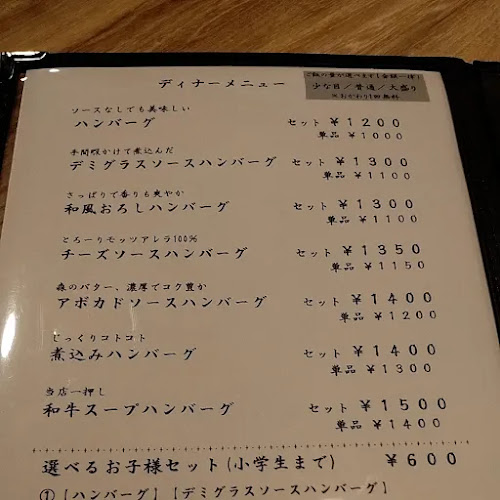 ディナーメニュー
ご飯の量が選べます(金額一律)
少な目／普通／大盛り
※おかわり1回無料
ソースなしでも美味しい
ハンバーグ セット ¥1200
単品 ¥1000
手間暇かけて煮込んだ
デミグラスソースハンバーグ セット ¥1300
単品 ¥1100
さっぱりで香りも爽やか
和風おろしハンバーグ セット ¥1300
単品 ¥1100
とろーりモッツアレラ100%
チーズソースハンバーグ セット ¥1350
単品 ¥1150
森のバター、濃厚でコク豊か
アボカドソースハンバーグ セット ¥1400
単品 ¥1200
じっくりコトコト
煮込みハンバーグ セット ¥1400
単品 ¥1300
当店一押し
和牛スープハンバーグ セット ¥1500
単品 ¥1400
選べるお子様セット(小学生まで) ¥600
①【ハンバーグ】【デミグラスソースハンバーグ】